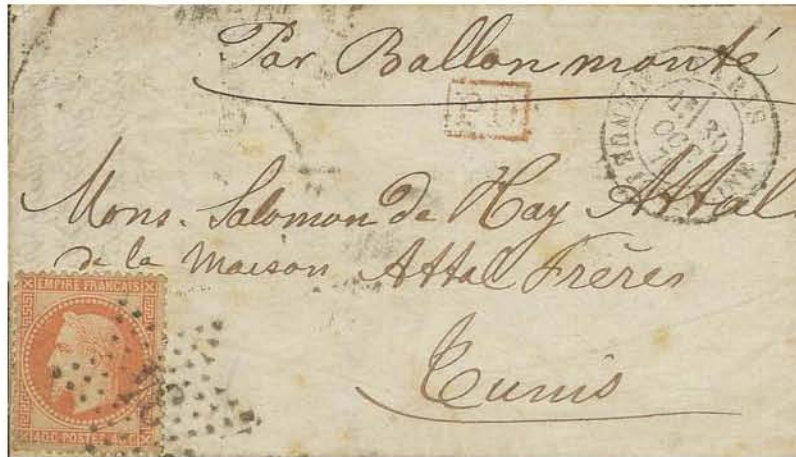 Par Ballon monté
PD
PARIS
OCT
Mons. Salomon de Hay Attal
de la Maison Attal Frères
EMPIRE FRANÇAIS
40C POSTES 40C
Tunis